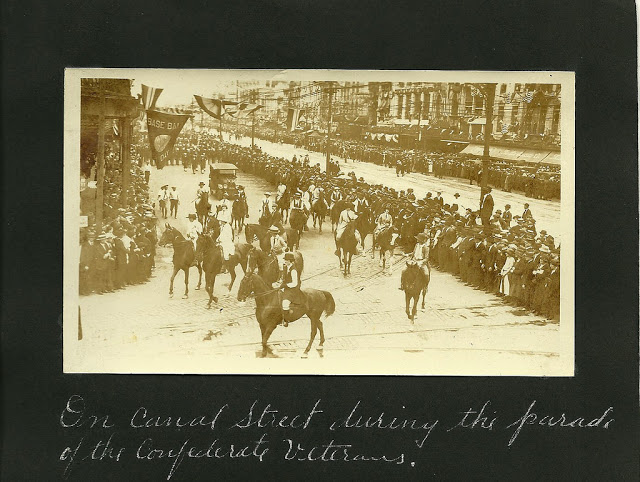 On Canal Street during the parade
of the Confederate Veterans.